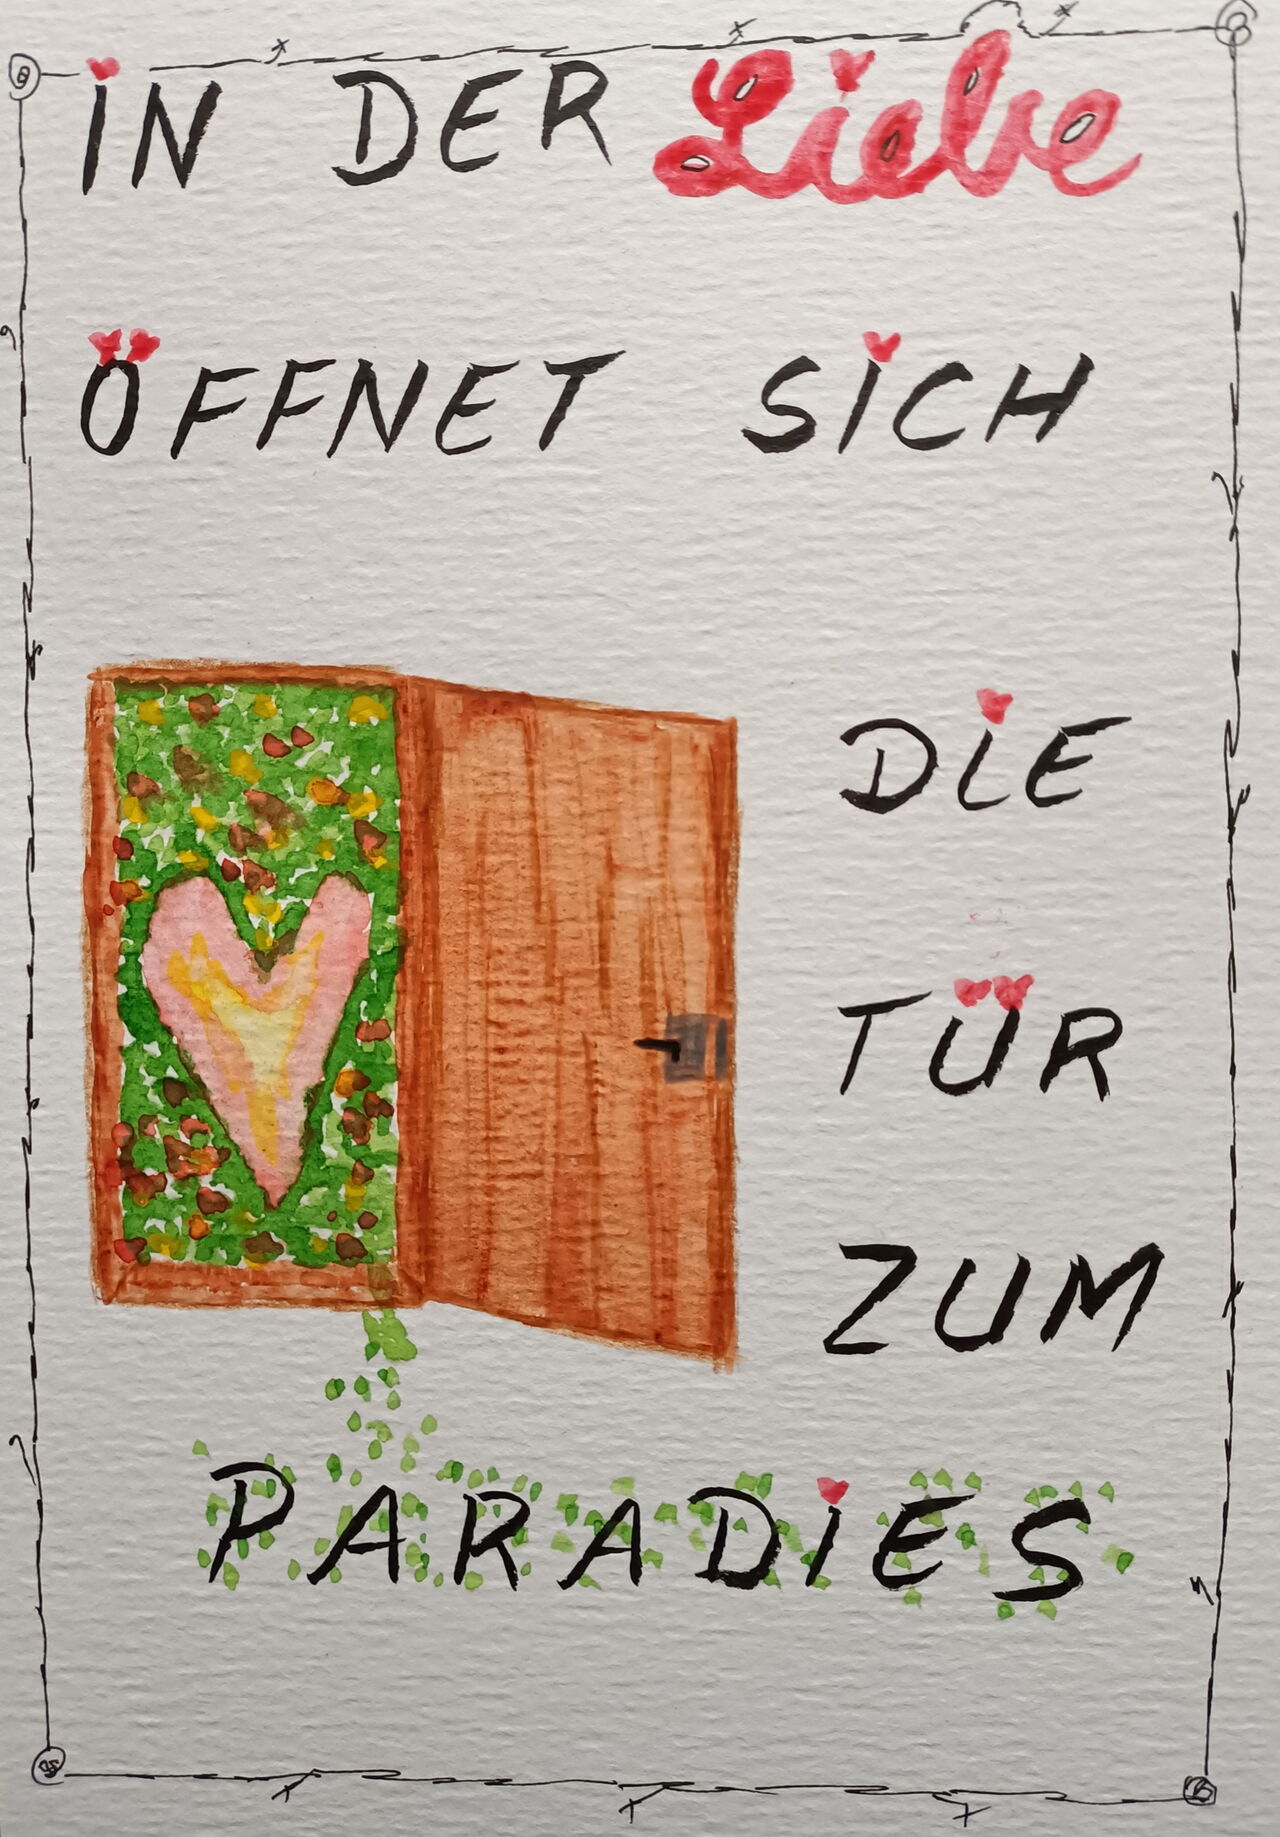 iN DER Liebe
ÖFFNET SiCH
DiE
TÜR
ZUM
PARADiES